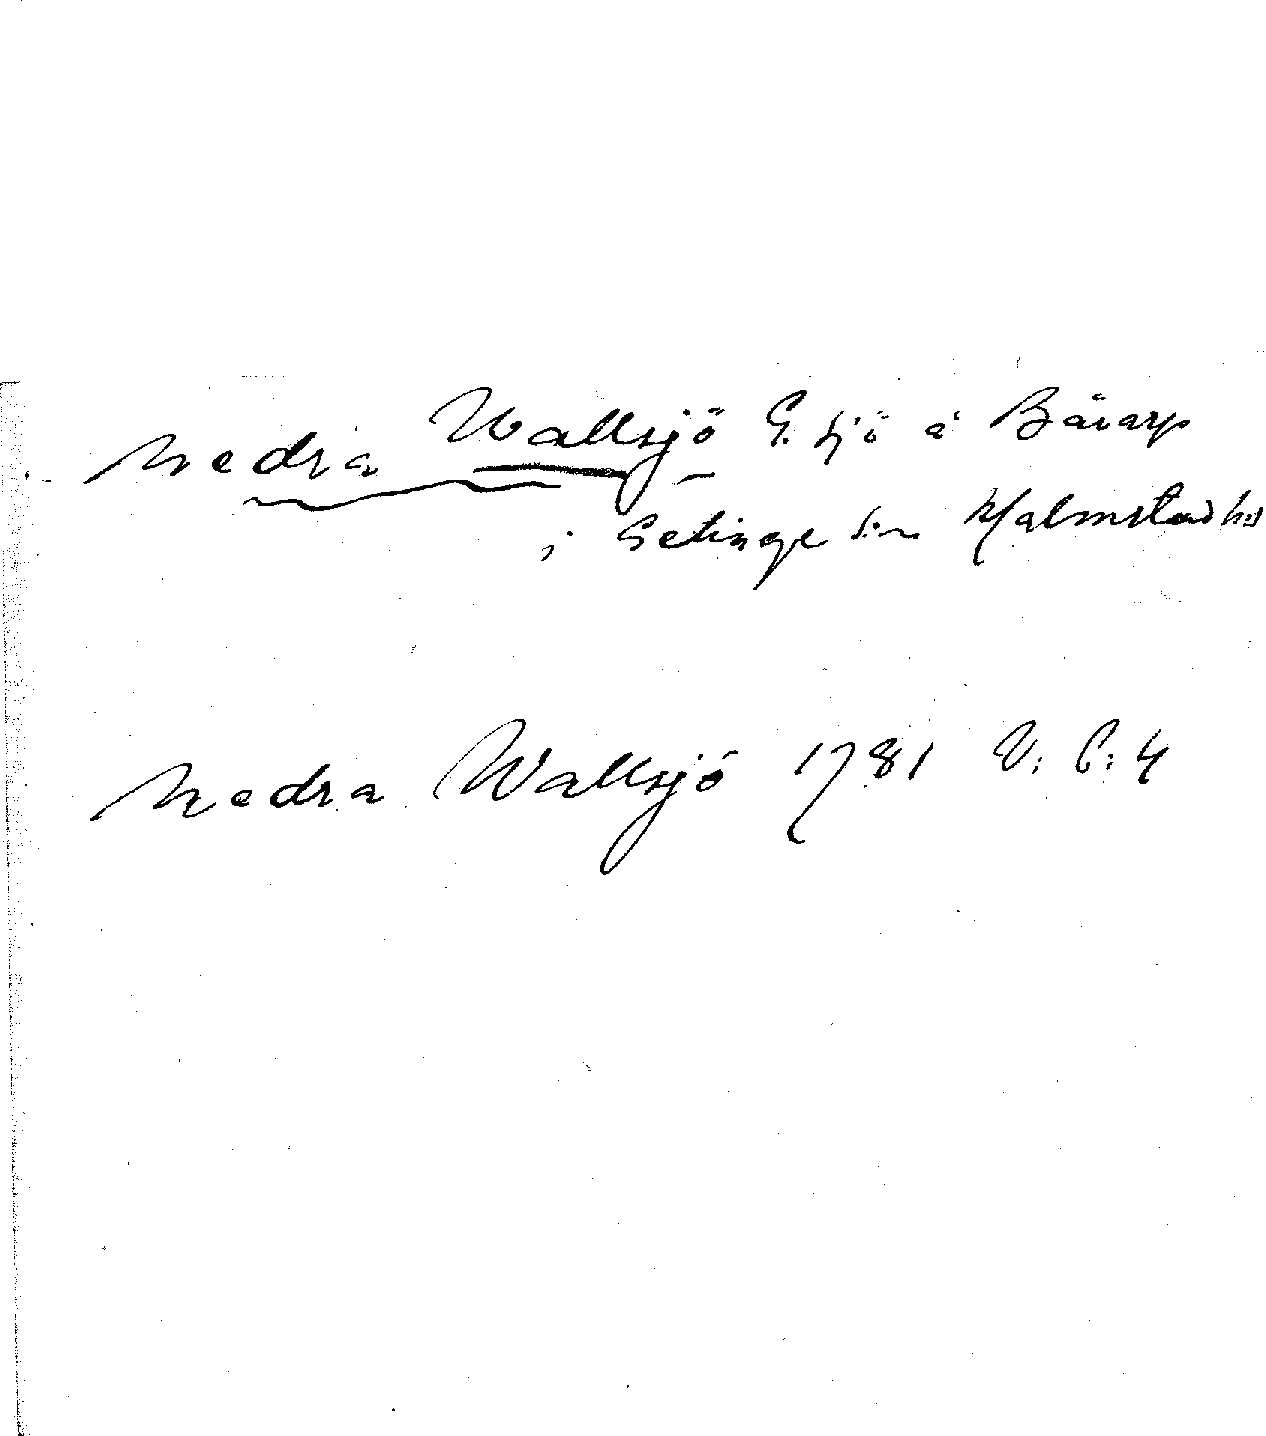 Nedra Wallsjö G. sjö å Bärarp
i Getinge sn Halmstads hd
Nedra Wallsjö 1781 V: C: 4